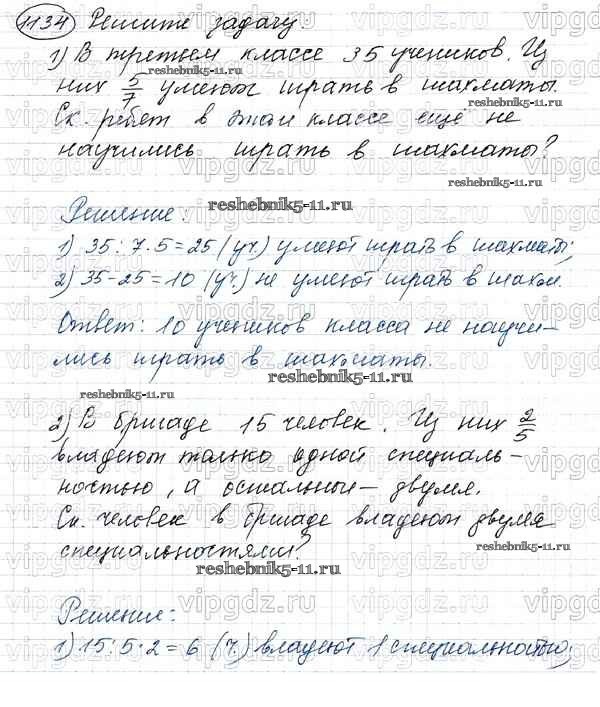 1134 Решите задачу.
1) В третьем классе 35 учеников. Из
них 5/7 умеют играть в шахматы.
Ск. ребят в этом классе ещё не
научились играть в шахматы?
reshebnik5-11.ru
Решение:
1) 35 : 7 · 5 = 25 (уч.) умеют играть в шахматы;
2) 35 - 25 = 10 (уч.) не умеют играть в шахм.
Ответ: 10 учеников класса не научи-
лись играть в шахматы.
reshebnik5-11.ru
2) В бригаде 15 человек. Из них 2/5
владеют только одной специаль-
ностью, а остальные - двумя.
Ск. человек в бригаде владеют двумя
специальностями?
reshebnik5-11.ru
Решение:
1) 15 : 5 · 2 = 6 (ч.) владеют 1 специальностью;